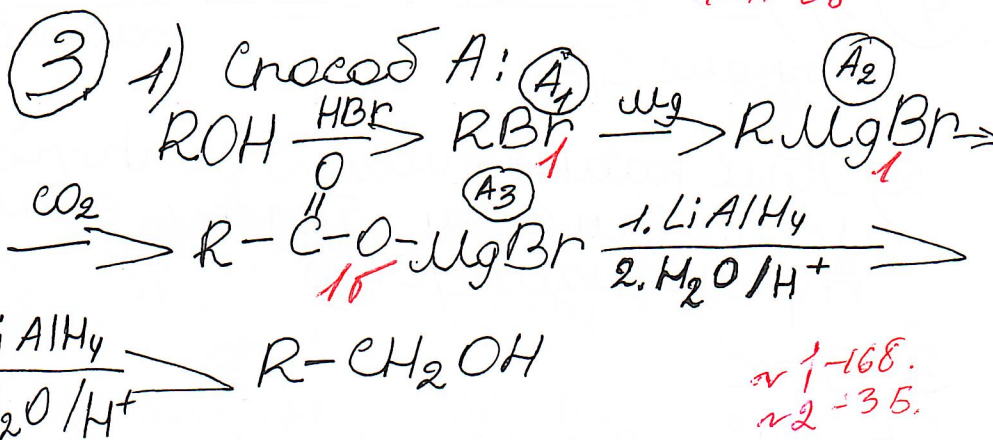 3 1) Способ А: A1 A2
ROH HBr → RBr Mg → RMgBr →
1 1
CO2 → R-C(=O)-O-MgBr A3 1. LiAlH4 / 2. H2O/H+ →
1б
AlH4 / 2O/H+ → R-CH2OH
~1-16б.
~2-3б.